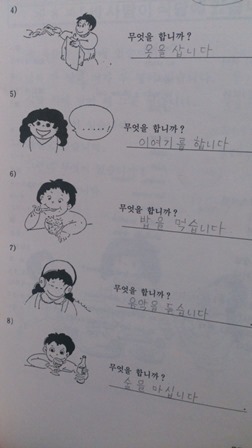 4)
무엇을 합니까?
옷을 삽니다
5)
......
무엇을 합니까?
이야기를 합니다
6)
무엇을 합니까?
밥을 먹습니다
7)
무엇을 합니까?
음악을 듣습니다
8)
무엇을 합니까?
술을 마십니다.